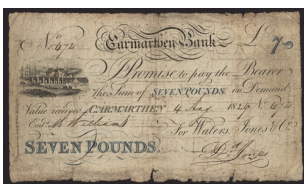 No 674 Carmarthen Bank £ 7
I Promise to pay the Bearer
the Sum of SEVEN POUNDS on Demand
Value received CARMARTHEN 4 Aug 1826 No 674
For Waters, Jones & Co
SEVEN POUNDS.